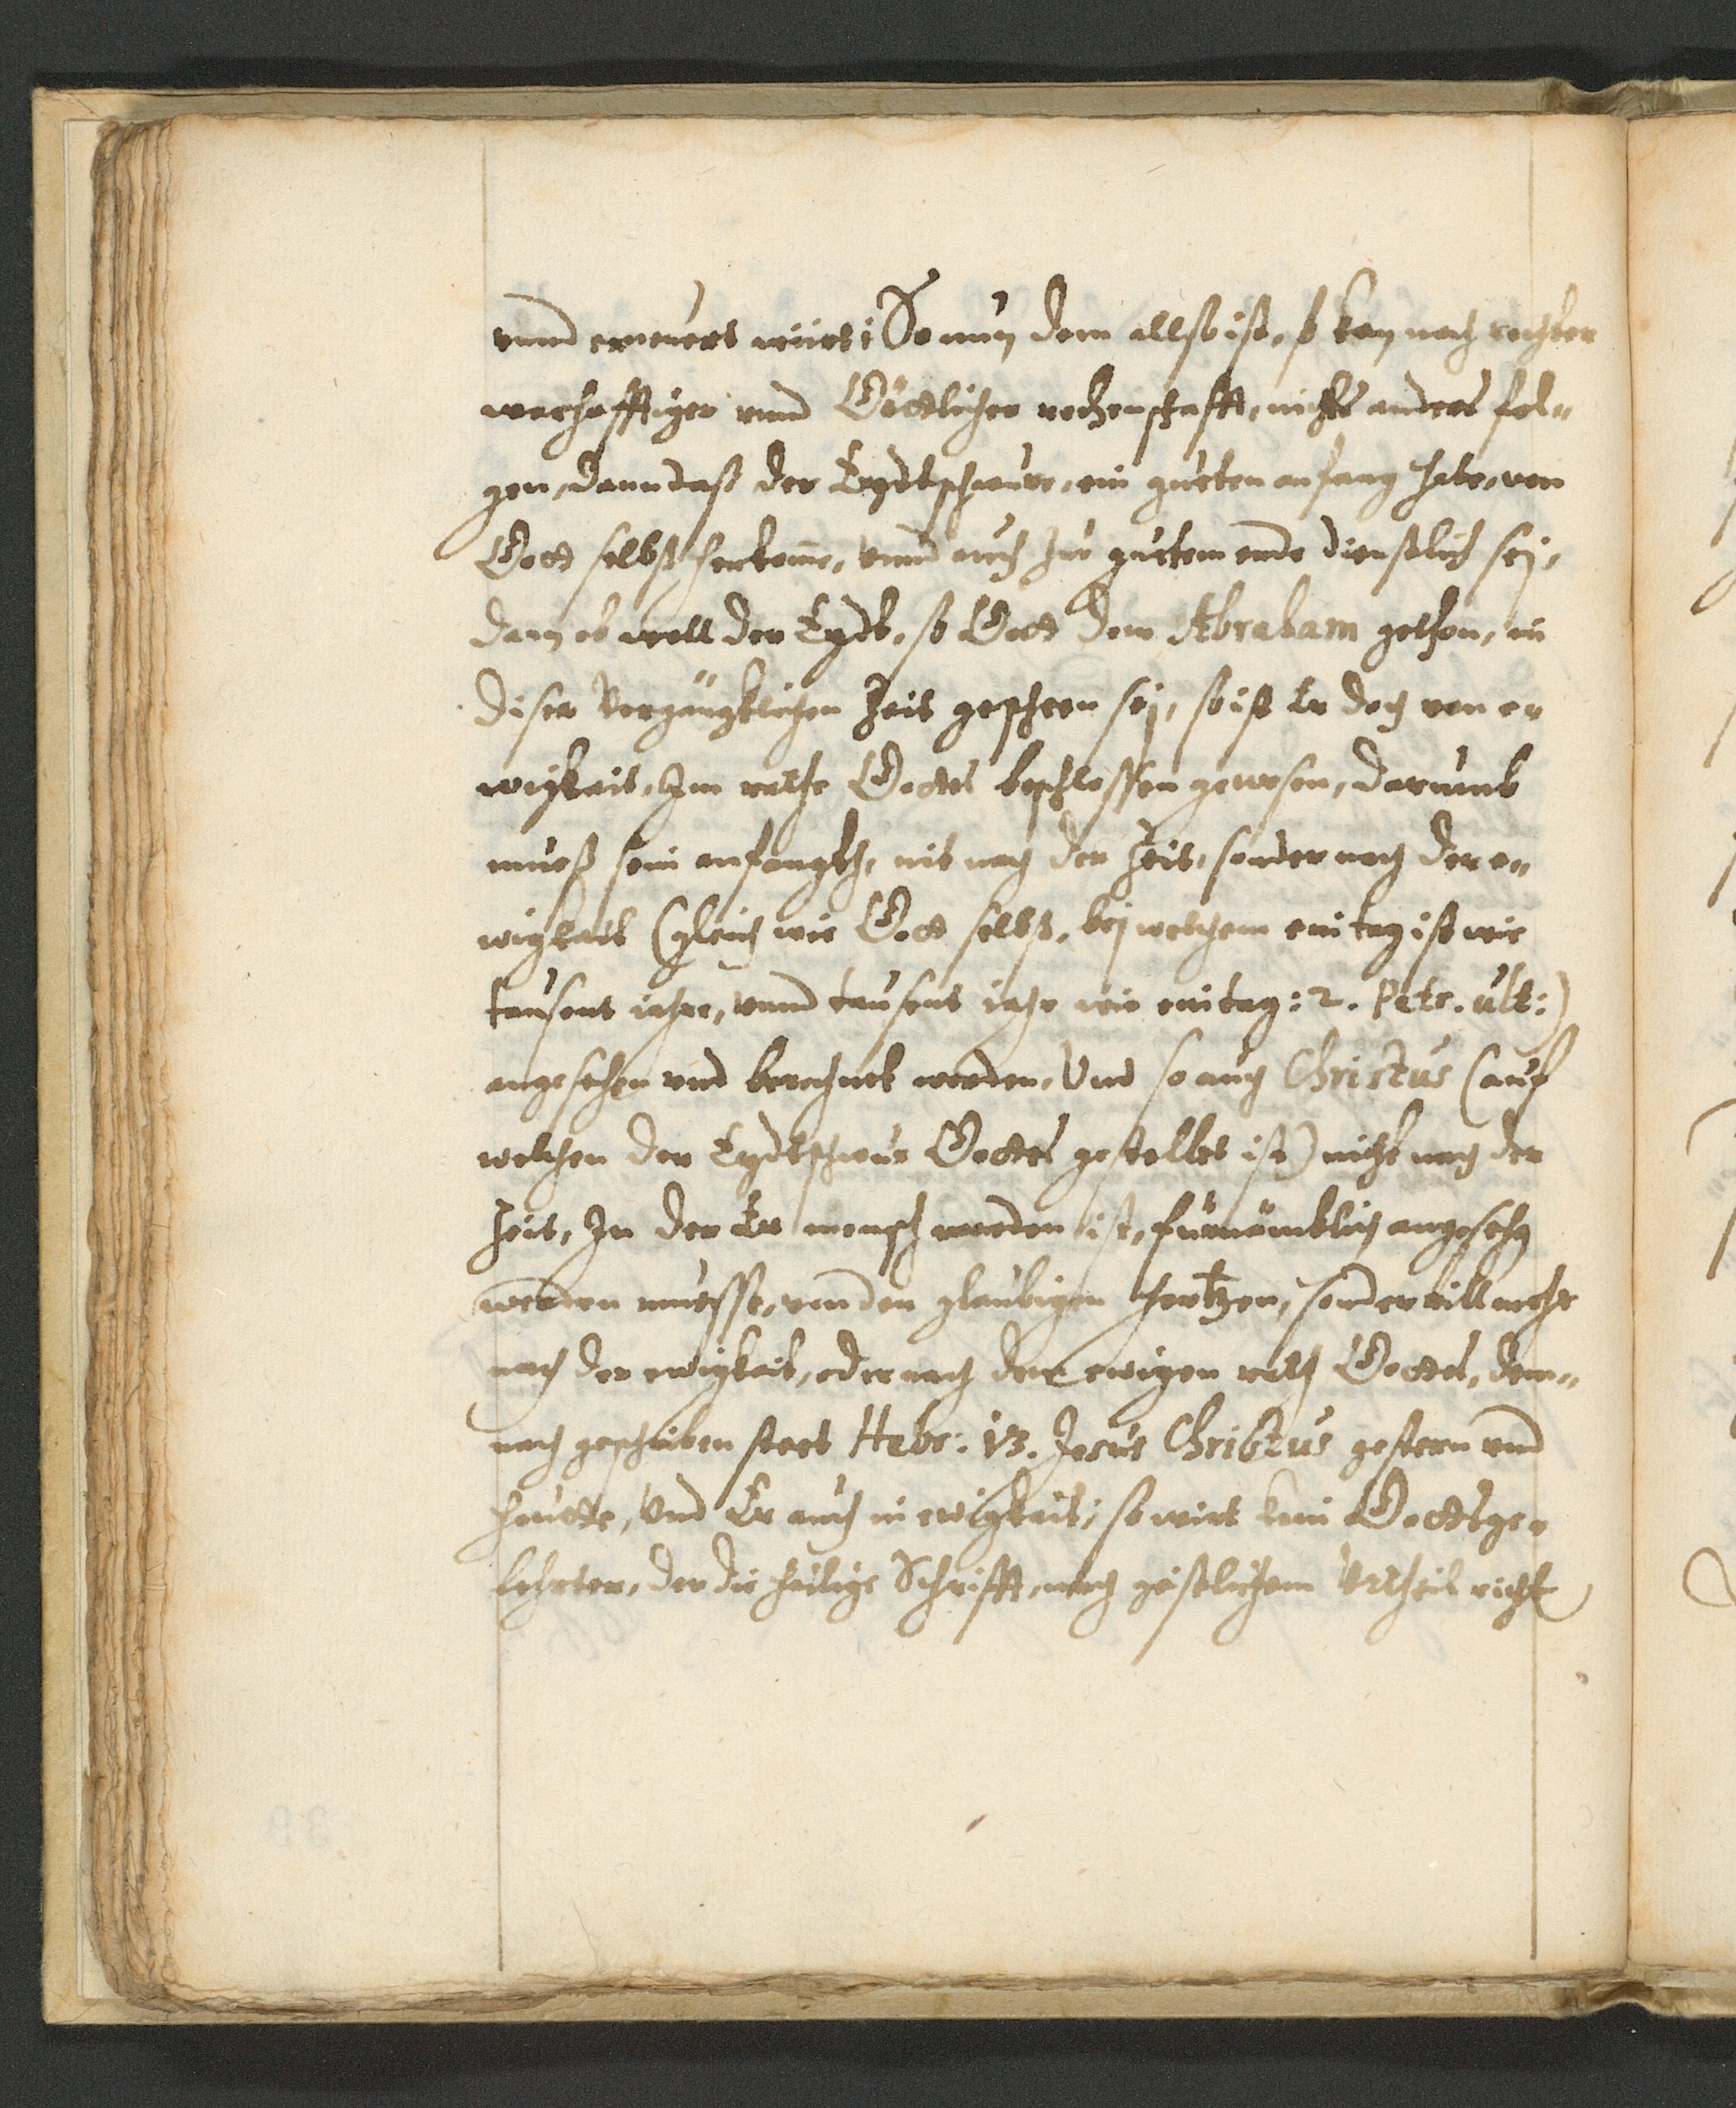 vnnd erneuert würt: So nun dem allso ist, so kan nach rechter
warhafftiger vnnd Göttlicher rechenschafft, nichts anders fol„
gen, dann daß der Eydtschwure, ein gueten anfang habe, von
Gott selbst herkome, vnnd auch zue guetem ende dienstlich sej,
dan ob woll der Eydt, so Gott dem Abraham gethon, in
diser Vergängklichen Zeit gescheen sej, so ist Er doch von e„
wigkait, Im rathe Gottes beschlossen gewesen, darumb
mueß sein anfangkh, nit nach der Zeit, sonder nach der e„
wigkait (gleich wie Gott selbst, bej welchem ein tag ist wie
tausent jahre, vnnd tausent jahr wie ein tag: 2. Petr. ult:)
angesehen vnd berechnet werden, Vnd so auch Christus (auf
welchen der Eydtschwur Gottes gestellet ist) nicht nach der
Zeit, In der Er mensch worden ist, fürnämblich angesehen
werden muesse, von den glaubigen hertzen, sonder vill mehr
nach der ewigkait, oder nach dem ewigen rath Gottes, dem„
nach geschriben steet Hebr: 13. Jesus Christus gestern vnd
heutte, Vnd Er auch in ewigkait; so wirt kein Gottsge„
lehrter, der die heilige Schrifft, nach geistlichem Vrtheil richt